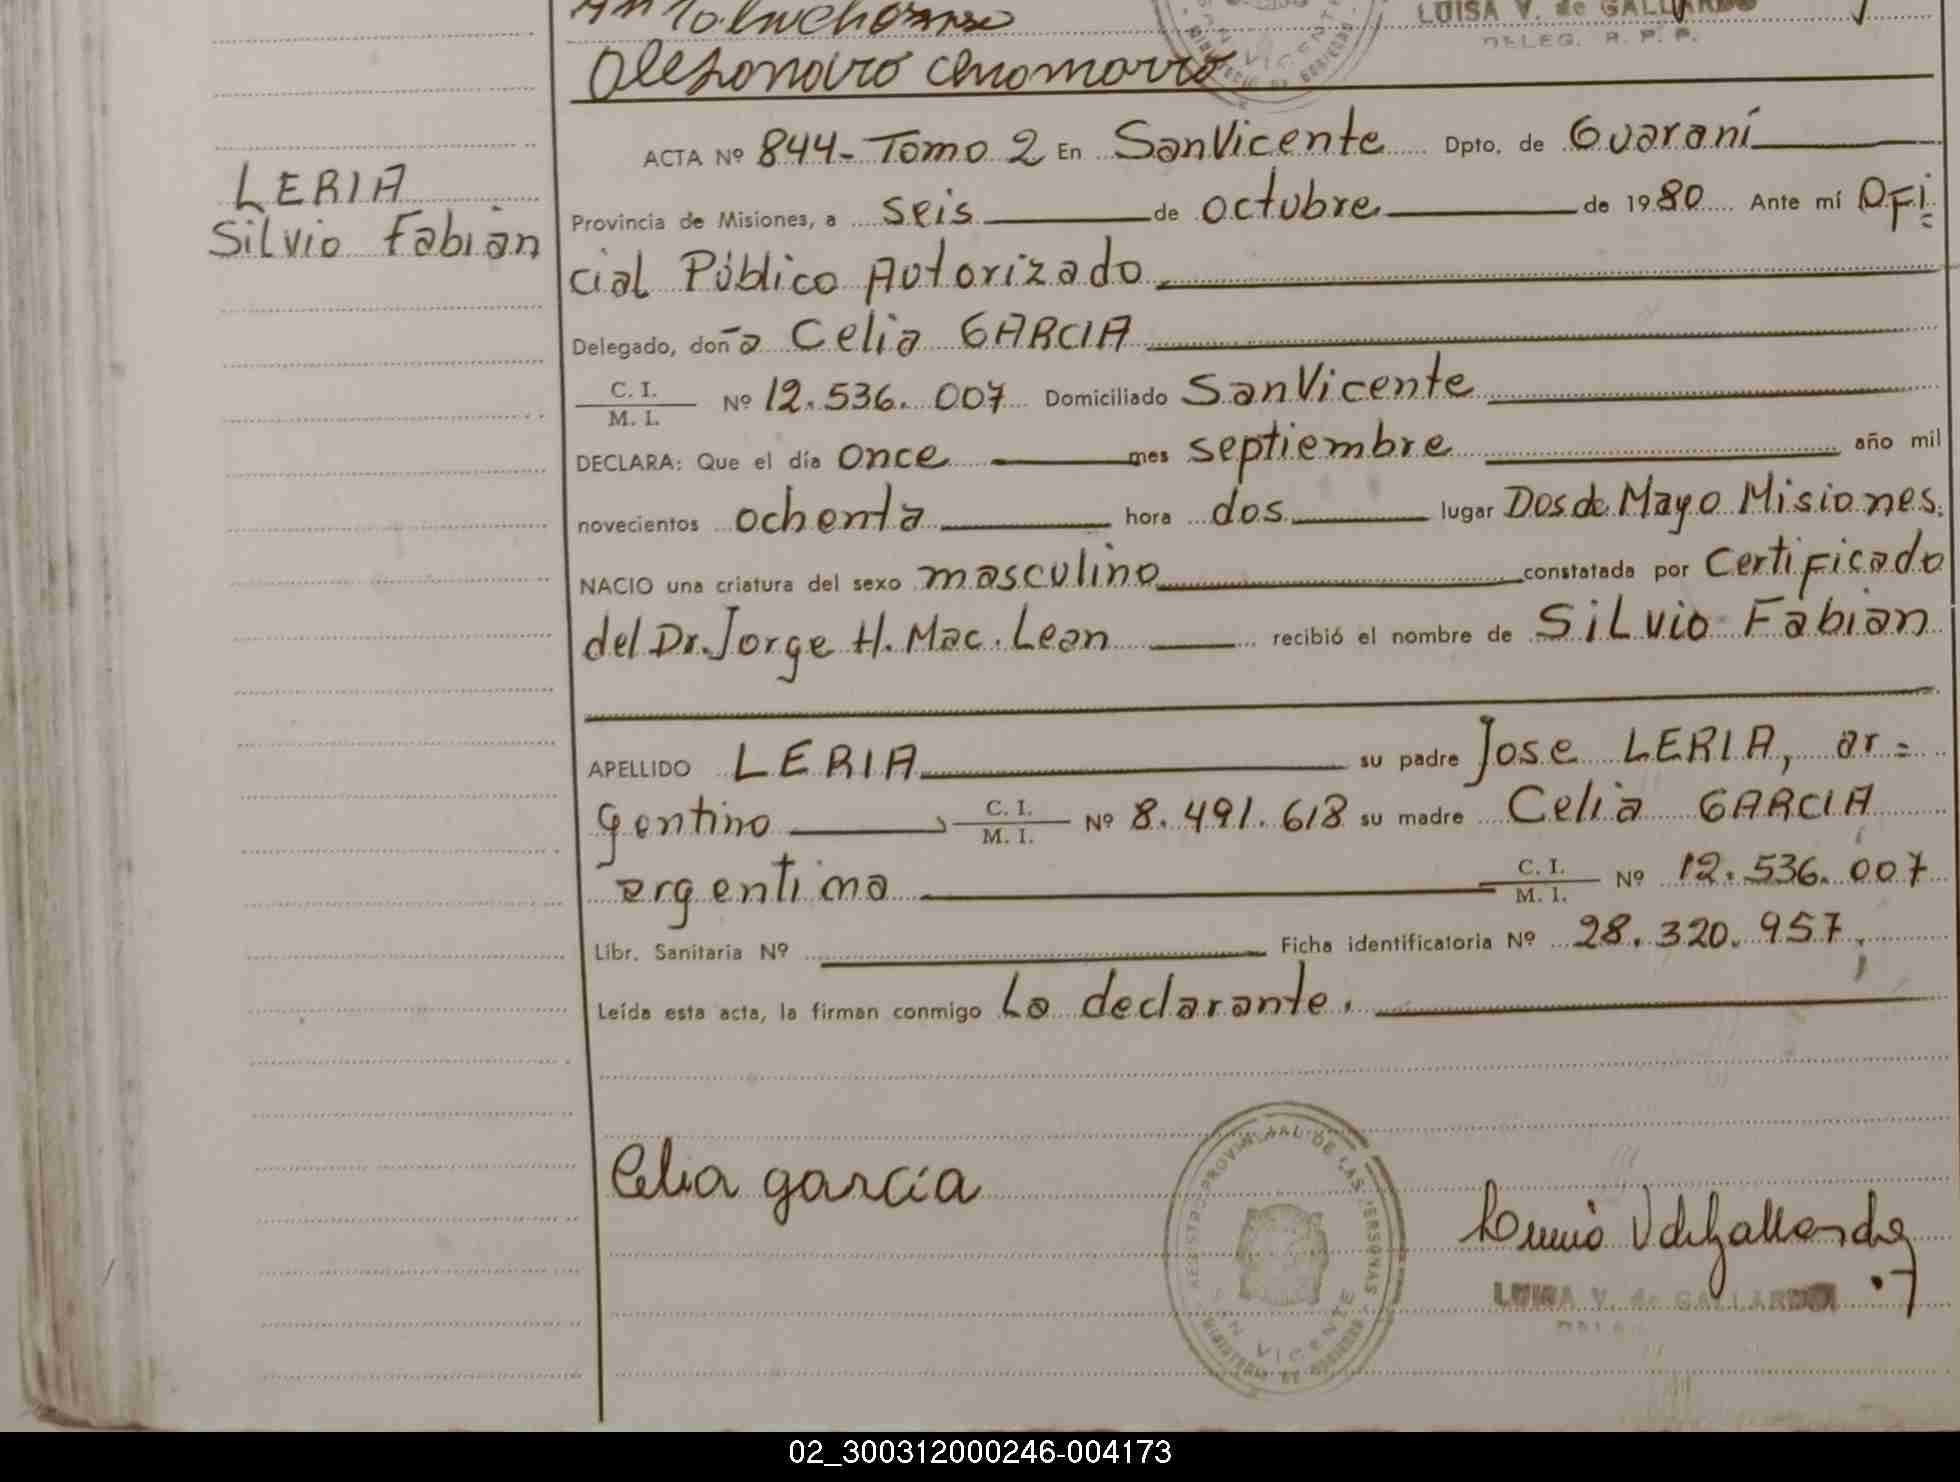 LUISA V. de GALLARDO
DELEG. R. P. P.
ACTA Nº 844- Tomo 2 En San Vicente Dpto. de Guaraní
LERIA
Silvio Fabian
Provincia de Misiones, a seis de octubre de 1980 Ante mí Ofi=
cial Público Autorizado
Delegado, doña Celia GARCIA
C. I.
M. I.
Nº 12.536.007 Domiciliado San Vicente
DECLARA: Que el día once mes septiembre año mil
novecientos ochenta hora dos lugar Dos de Mayo Misiones.
NACIO una criatura del sexo masculino constatada por Certificado
del Dr. Jorge H. Mac. Lean recibió el nombre de Silvio Fabian
APELLIDO LERIA su padre Jose LERIA, ar=
gentino C. I.
M. I.
Nº 8.491.618 su madre Celia GARCIA
argentina C. I.
M. I.
Nº 12.536.007
Libr. Sanitaria Nº Ficha identificatoria Nº 28.320.957,
Leída esta acta, la firman conmigo La declarante.
Celia garcía
SAN VICENTE
LUISA V. de GALLARDO
02_300312000246-004173